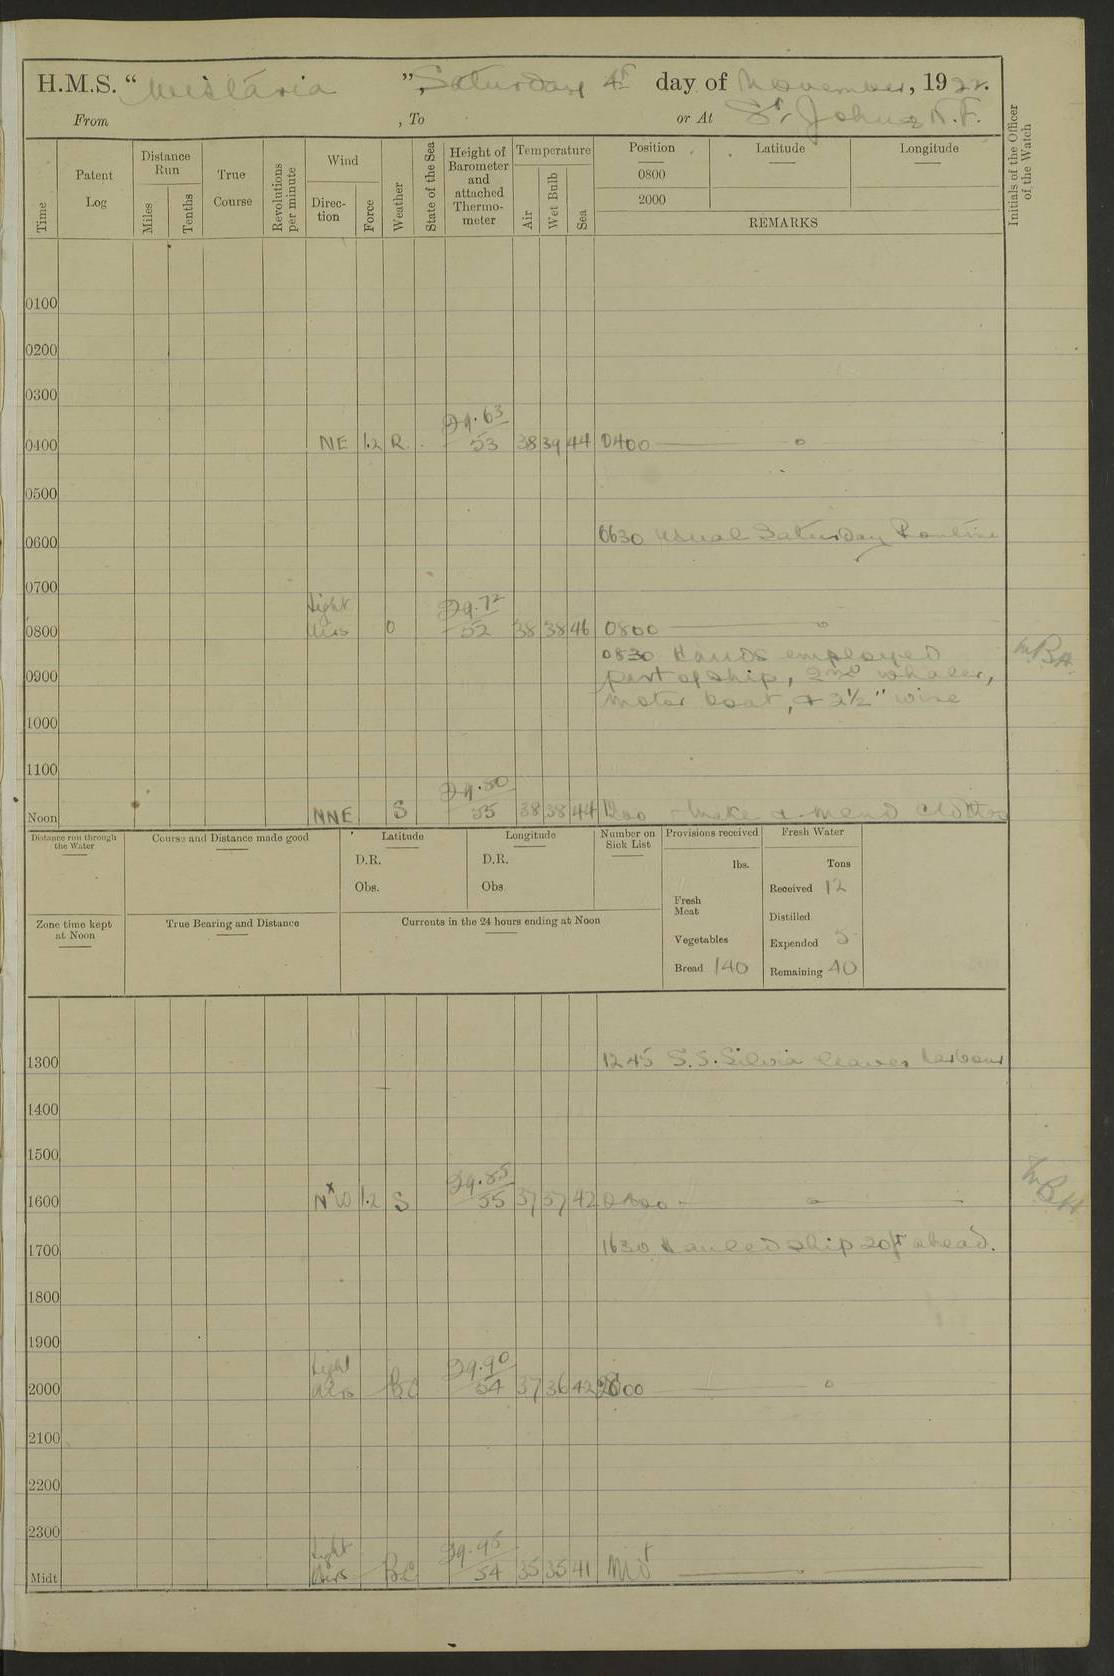 H.M.S. “ Wistaria ”, Saturday 4th day of November, 1922.
From , To or At St. Johns N.F.
Time
Patent Log
Distance Run
Miles
Tenths
True Course
Revolutions per minute
Wind
Direc-tion
Force
Weather
State of the Sea
Height of Barometer and attached Thermo-meter
Temperature
Air
Wet Bulb
Sea
Position Latitude Longitude
0800
2000
REMARKS
Initials of the Officer of the Watch
0100
0200
0300
29.63
0400 NE 1.2 R. 53 38 39 44 0400
0500
0600 0630 Usual Saturday Routine
0700
Light 29.72
0800 Airs O 52 38 38 46 0800
0830 Hands employed
0900 part of ship, 2nd whaler,
motor boat, & 2½" wire
1000
1100
29.80
Noon NNE S 55 38 38 44 1200 - Make & mend clothes
Distance run through the Water
Course and Distance made good
Latitude
D.R.
Obs.
Longitude
D.R.
Obs.
Number on Sick List
Provisions received
lbs.
Fresh Meat
Vegetables
Bread 140
Fresh Water
Tons
Received 12
Distilled
Expended 5
Remaining 40
Zone time kept at Noon
True Bearing and Distance
Currents in the 24 hours ending at Noon
1300 1245 S.S. Silvia leaves harbour
1400
1500
29.85
1600 NxW 1.2 S 55 37 37 42
1700 1630 Hauled ship 20ft ahead.
1800
1900
Light 29.90
2000 Airs BC 54 37 36 42 2000
2100
2200
2300
Light 29.95
Midt Airs BC 54 35 35 41 Mdt